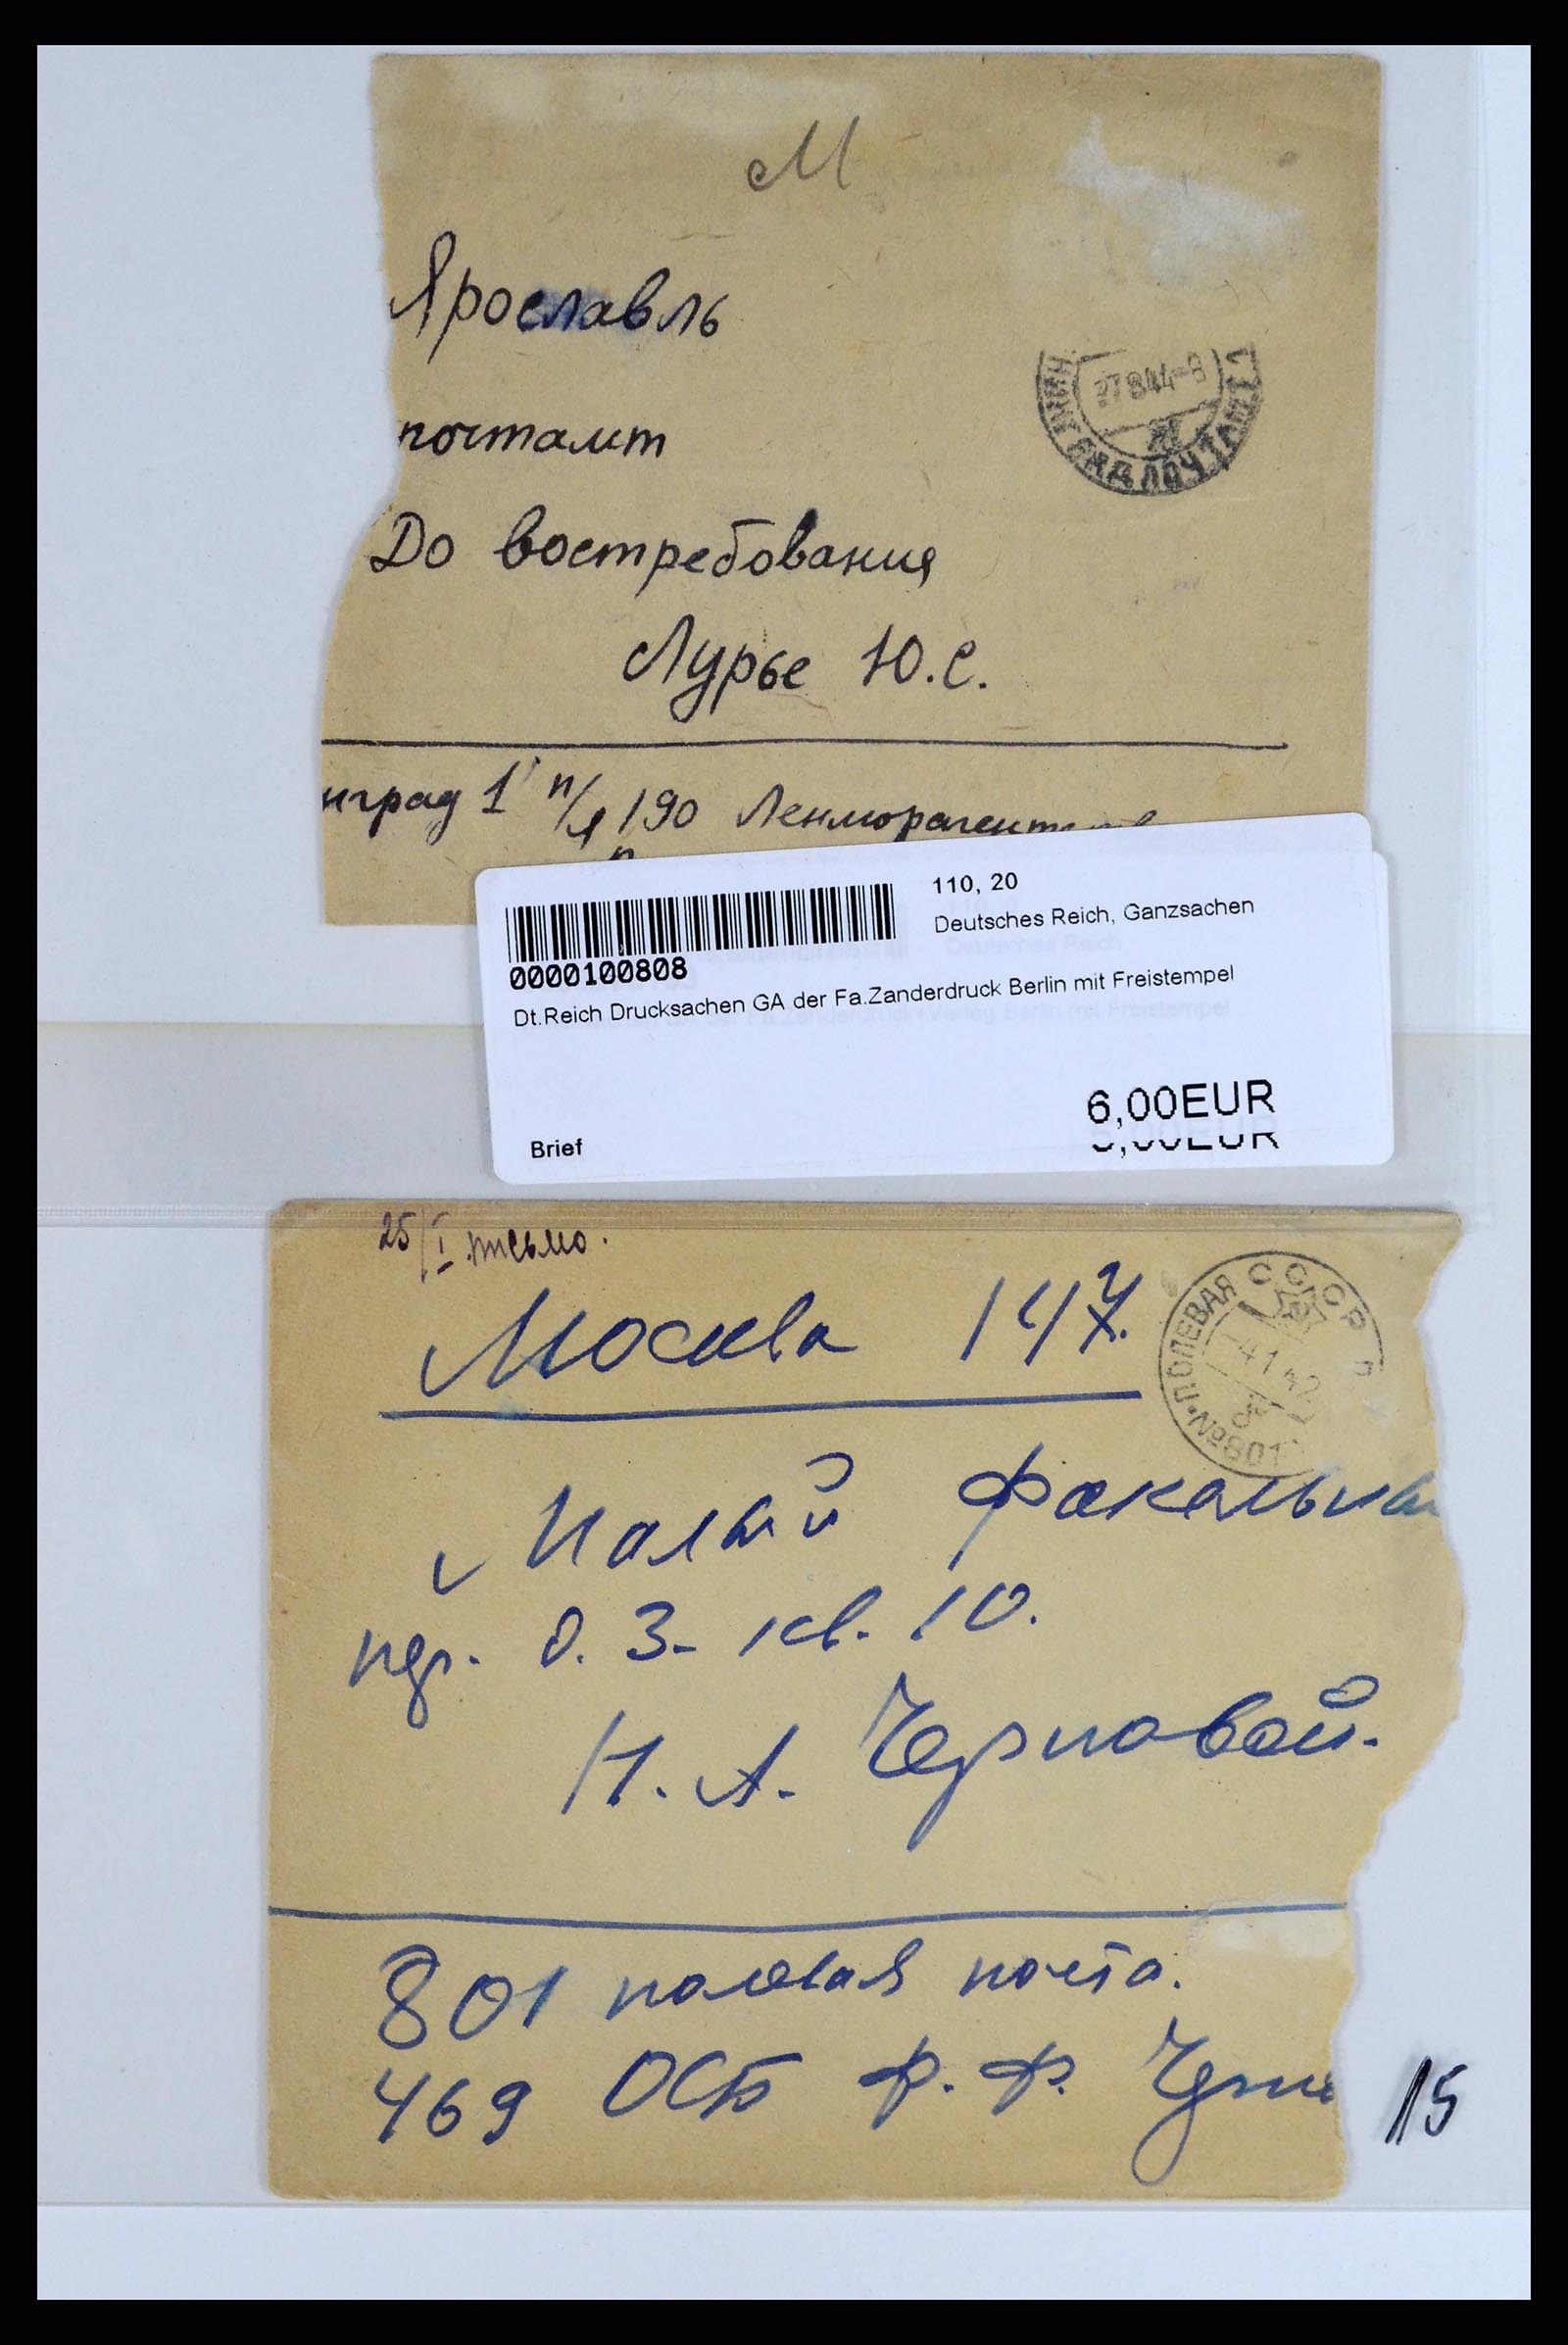 М
Ярославль
27844-8
почтамт
До востребования
Лурье Ю.С.
нград 1 п/я 190 Ленморагент
110, 20
Deutsches Reich, Ganzsachen
0000100808
Dt.Reich Drucksachen GA der Fa.Zanderdruck Berlin mit Freistempel
6,00EUR
Brief
25/I письмо.
Москва 147.
ПОЛЕВАЯ СССР
4 1 42
№801
Малый Факельны
пер. д. 3- кв. 10.
Н. А. Черновой.
801 полевая почта.
469 ОСБ Ф. Ф. Черн
15